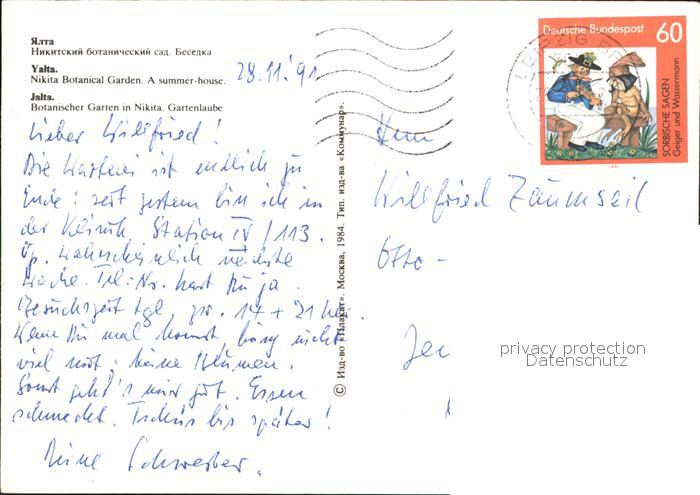 Ялта
Никитский ботанический сад. Беседка
Yalta.
Nikita Botanical Garden. A summer-house.
Jalta.
Botanischer Garten in Nikita. Gartenlaube
28.11.91
Lieber Willfried!
Die Warterei ist endlich zu
Ende: seit gestern bin ich in
der Klinik, Station IV/113.
Op. wahrscheinlich nächste
Woche. Tel.-Nr. hast Du ja.
Besuchszeit tgl. zw. 14 + 21 Uhr.
Wenn Du mal kommst, bring nicht
viel mit; keine Blumen.
Sonst geht's mir gut. Essen
schmeckt. Tschüs bis später!
Deine Schwester.
© Изд-во «Плакат». Москва, 1984. Тип. изд-ва «Коммунар».
Deutsche Bundespost 60
SORBISCHE SAGEN
Geiger und Wassermann
LEIPZIG
Herrn
Willfried Zaumseil
Otto-
Jen
privacy protection
Datenschutz